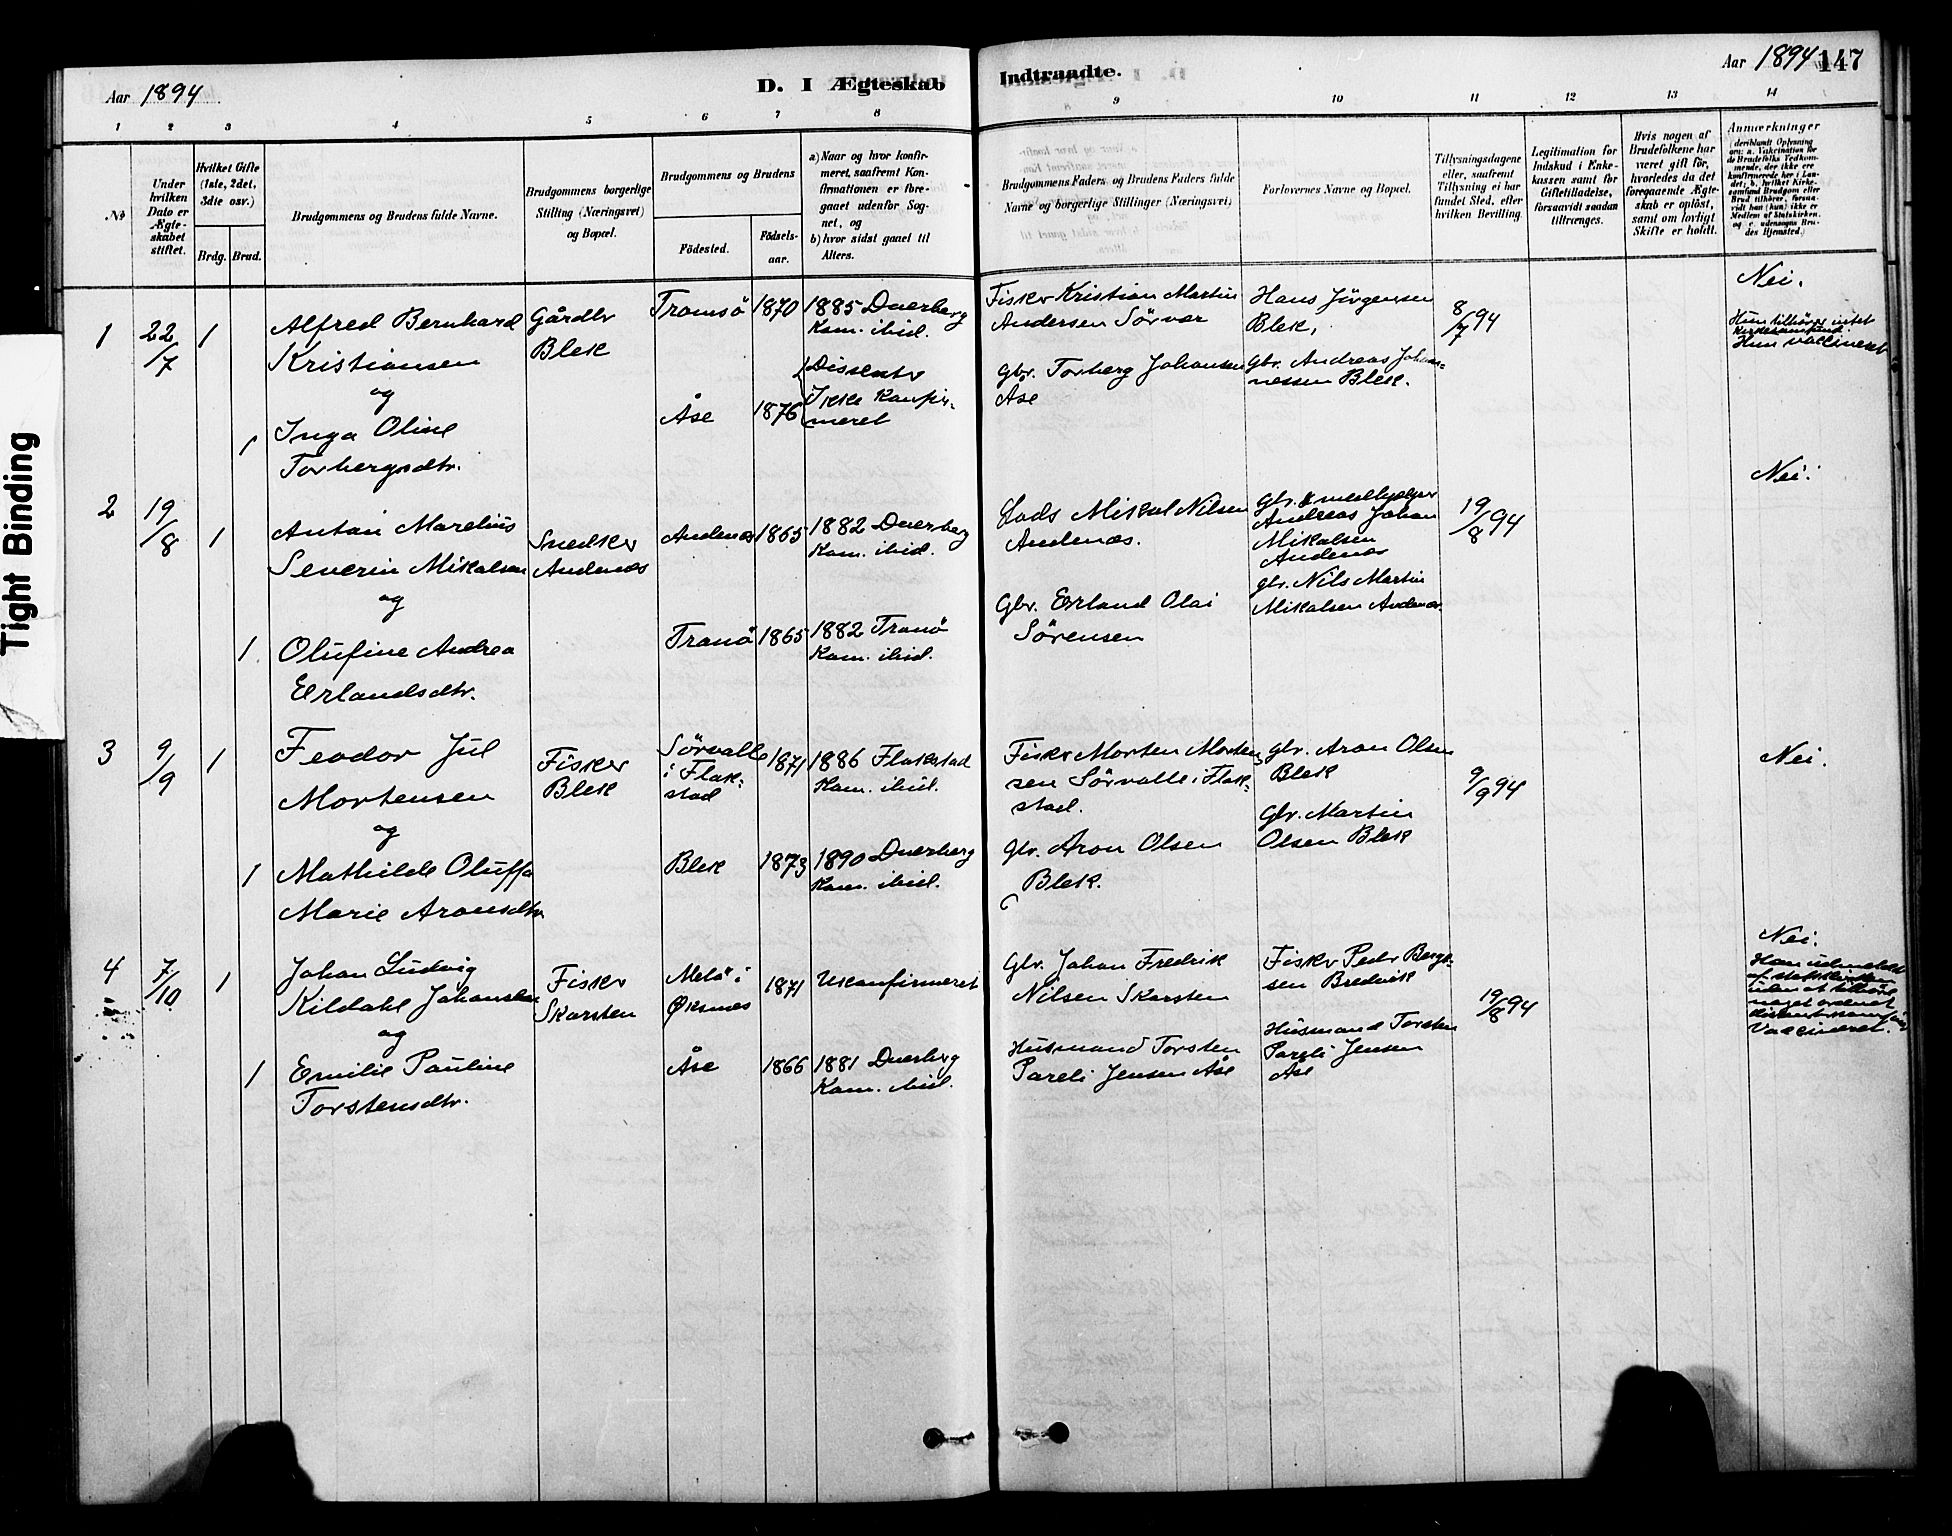 Tight Binding
Aar 1894
D. I Ægteskab
1 2 3 4 5 6 7 8
№
Under hvilken Dato er Ægteskabet stiftet.
Hvilket Gifte (1ste, 2det, 3die osv.)
Brdg. Brud.
Brudgommens og Brudens fulde Navne.
Brudgommens borgerlige Stilling (Næringsvei) og Bopæl.
Brudgommens og Brudens
Födested.
Födsels-aar.
a) Naar og hvor konfir-
meret, saafremt Kon-
firmationen er fore-
gaaet udenfor Sog-
net, og
b) hvor sidst gaaet til
Alters.
Indtraadte.
Aar 1894
147
9 10 11 12 13 14
Brudgommens Faders og Brudens Faders fulde
Navne og borgerlige Stillinger (Næringsvei)
Forlovernes Navne og Bopæl.
Tillysningsdagene
eller, saafremt
Tillysning ei har
fundet Sted, efter
hvilken Bevilling.
Legitimation for
Indskud i Enke-
kassen samt for
Giftetilladelse,
forsaavidt saadan
tiltrænges.
Hvis nogen af
Brudefolkene har
været gift för,
hvorledes da det
foregaaende Ægte-
skab er oplöst,
samt om lovligt
Skifte er holdt.
Anmærkninger
(deriblandt Oplysning
om: a. Vakcination for
de Brudefolks Vedkom-
mende, der ikke ere
konfirmerede her i Lan-
det; b. hvilket Kirke-
samfund Brudgom eller
Brud tilhörer, forsaa-
vidt han (hun) ikke er
Medlem af Statskirken,
og c. udensogns Bru-
des Hjemsted.)
1 22/7 1
Alfred Bernhard
Kristiansen
og
1 Inga Oline
Torbergsdtr.
Gårdbr
Blek
Tromsö 1870
1885 Dverberg
Kom. ibid.
Åse 1876
Dissenter
Ikke konfir-
meret
Fisker Kristian Martin
Andersen Sörvær
Gbr. Torberg Johansen
Åse
Hans Jörgensen
Blek,
Gbr. Andreas Johan-
nessen Blek.
8/7 94
Nei.
Hun tilhörer intet
Kirkesamfund.
Hun vaccineret
2 19/8 1
Anton Marelius
Severin Mikalsen
og
1 Olufine Andrea
Erlandsdtr.
Snedker
Andenes
Andenæs 1865
1882 Dverberg
Kom. ibid.
Tranö 1865
1882 Tranö
Kom. ibid.
Lods Mikal Nilsen
Andenæs.
Gbr. Erland Olai
Sörensen
Gbr. & medhjelper
Andreas Johan
Mikalsen
Andenæs
gbr. Nils Martin
Mikalsen Andenæs
19/8 94
Nei.
3 9/9 1
Feodor Jul
Mortensen
og
1 Mathilde Oluffa
Marie Aronsdtr
Fisker
Blek
Sörvalle
i Flak-
stad
1871
1886 Flakstad
Kom. ibid.
Blek 1873
1890 Dverberg
Kom. ibid.
Fisker Morten Morten-
sen Sörvalle i Flak-
stad.
Gbr. Aron Olsen
Blek.
gbr. Aron Olsen
Blek
Gbr. Martin
Olsen Blek
9/9 94
Nei.
4 7/10 1
Johan Ludvig
Kildahl Johansen
og
1 Emilie Pauline
Torstensdtr.
Fisker
Skarsten
Melö i
Øksnes
1871
Ukonfirmeret
Åse 1866
1881 Dverberg
Kom. ibid.
Gbr. Johan Fredrik
Nilsen Skarsten
Husmand Torsten
Pareli Jensen Åse
Fisker Peder Bergt-
sen Bredvik
Husmand Torsten
Pareli Jensen
Åse
19/8 94
Nei.
Han udmeldt
af statskirken
uden at tilhöre
noget ordnet
Vaccineret.